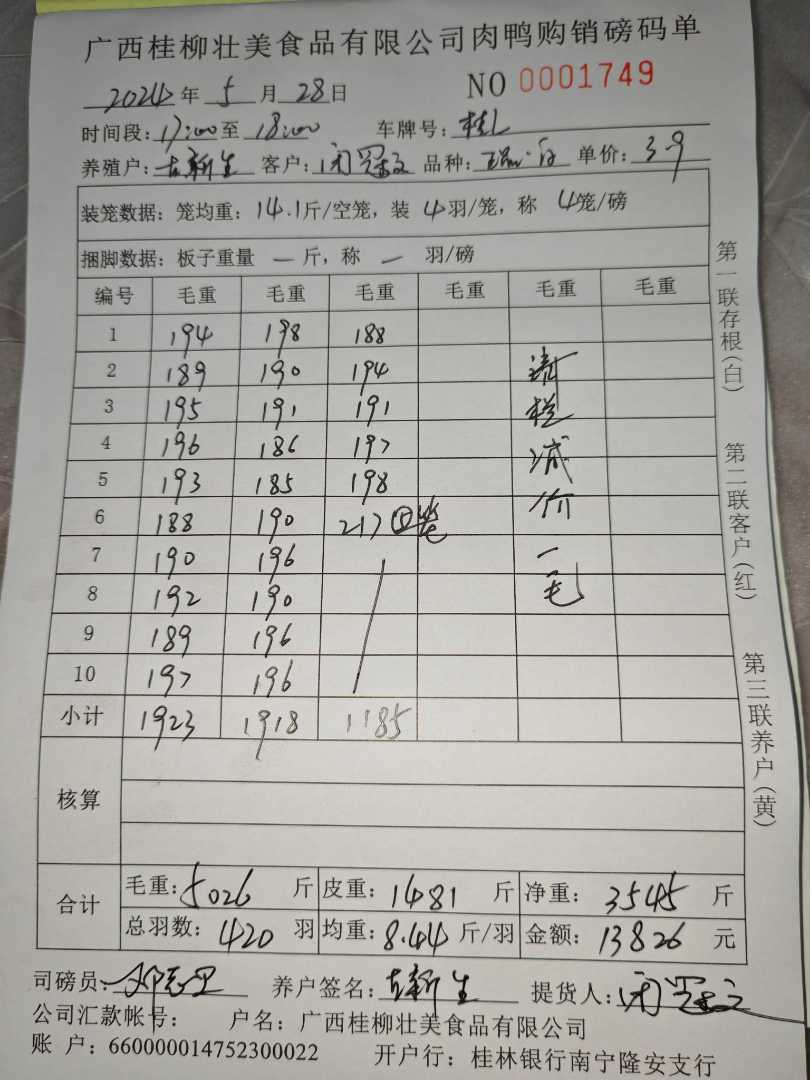 广西桂柳壮美食品有限公司肉鸭购销磅码单
2024年 5 月 28 日 NO 0001749
时间段:17:00至 18:00 车牌号:桂L
养殖户:古新生 客户:闭冠文 品种: 单价:3.9
装笼数据:笼均重:14.1斤/空笼,装 4羽/笼,称 4笼/磅
捆脚数据:板子重量 一 斤,称 一 羽/磅
编号 毛重 毛重 毛重 毛重 毛重 毛重
1 194 198 188
2 189 190 194 请
3 195 191 191 核
4 196 186 197 减
5 193 185 198 价
6 188 190 217⑤笼
7 190 196 一
8 192 190 毛
9 189 196
10 197 196
小计 1923 1918 1185
核算
合计
毛重:5026 斤 皮重:1481 斤 净重:3545 斤
总羽数:420 羽 均重:8.44 斤/羽 金额:13826 元
司磅员: 养户签名:古新生 提货人:闭冠文
公司汇款帐号: 户名:广西桂柳壮美食品有限公司
账 户:660000014752300022 开户行:桂林银行南宁隆安支行
第一联存根(白) 第二联客户(红) 第三联养户(黄)